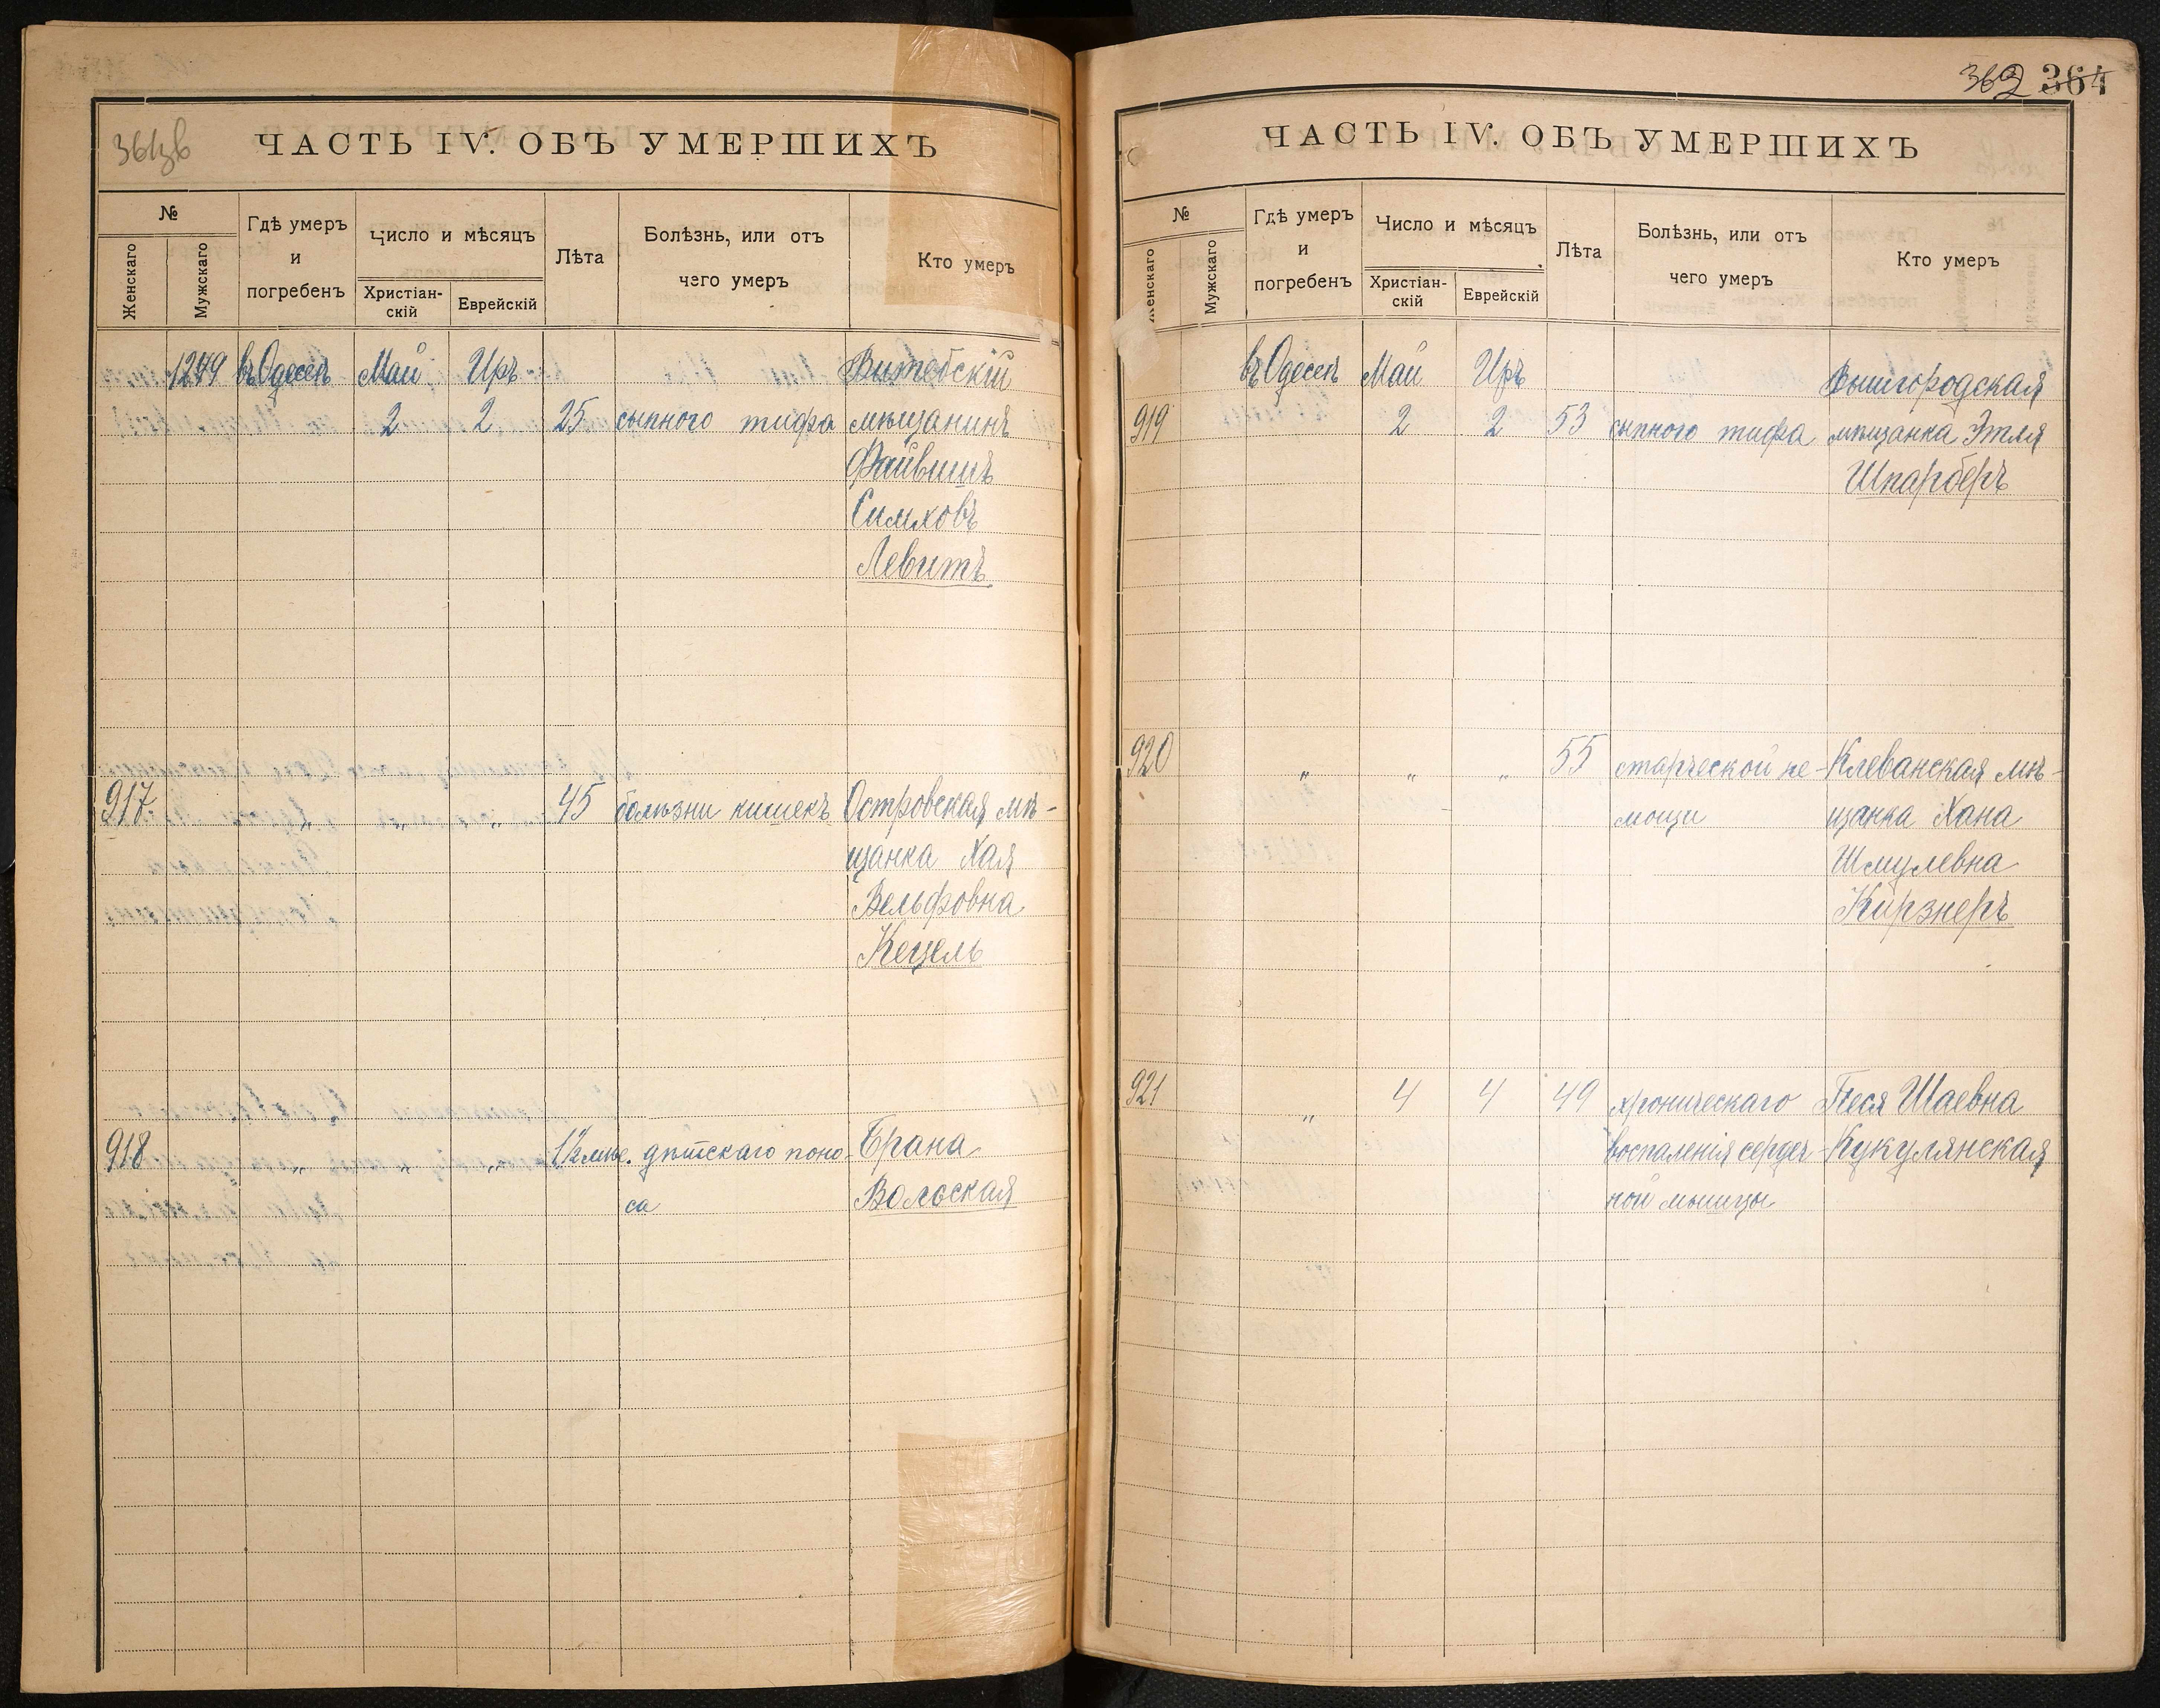 361зв
ЧАСТЬ IV. ОБЪ УМЕРШИХЪ
№
Женскаго
Мужскаго
Гдѣ умеръ
и
погребенъ
Число и мѣсяцъ
Христіан-
скій
Еврейскій
Лѣта
Болѣзнь, или отъ
чего умеръ
Кто умеръ
1279 въ Одессѣ Май Иръ Витебскій
2 2 25 сыпного тифа мѣщанинъ
Файвишъ
Симховъ
Левитъ
917 " " " 45 болѣзни кишекъ Островская мѣ-
щанка Хая
Вельфовна
Кецель
918 " " " 1½ мѣс. дѣтскаго поно- Брана
са Вольская
362 364
ЧАСТЬ IV. ОБЪ УМЕРШИХЪ
№
Женскаго
Мужскаго
Гдѣ умеръ
и
погребенъ
Число и мѣсяцъ
Христіан-
скій
Еврейскій
Лѣта
Болѣзнь, или отъ
чего умеръ
Кто умеръ
въ Одессѣ Май Иръ Вышгородская
919 2 2 53 сыпного тифа мѣщанка Этля
Шпарберъ
920 " " " 55 старческой не- Клеванская мѣ-
мощи щанка Хана
Шмулевна
Кирзнеръ
921 " 4 4 49 хроническаго Песя Шаевна
воспаленія сердеч- Кукулянская
ной мышцы